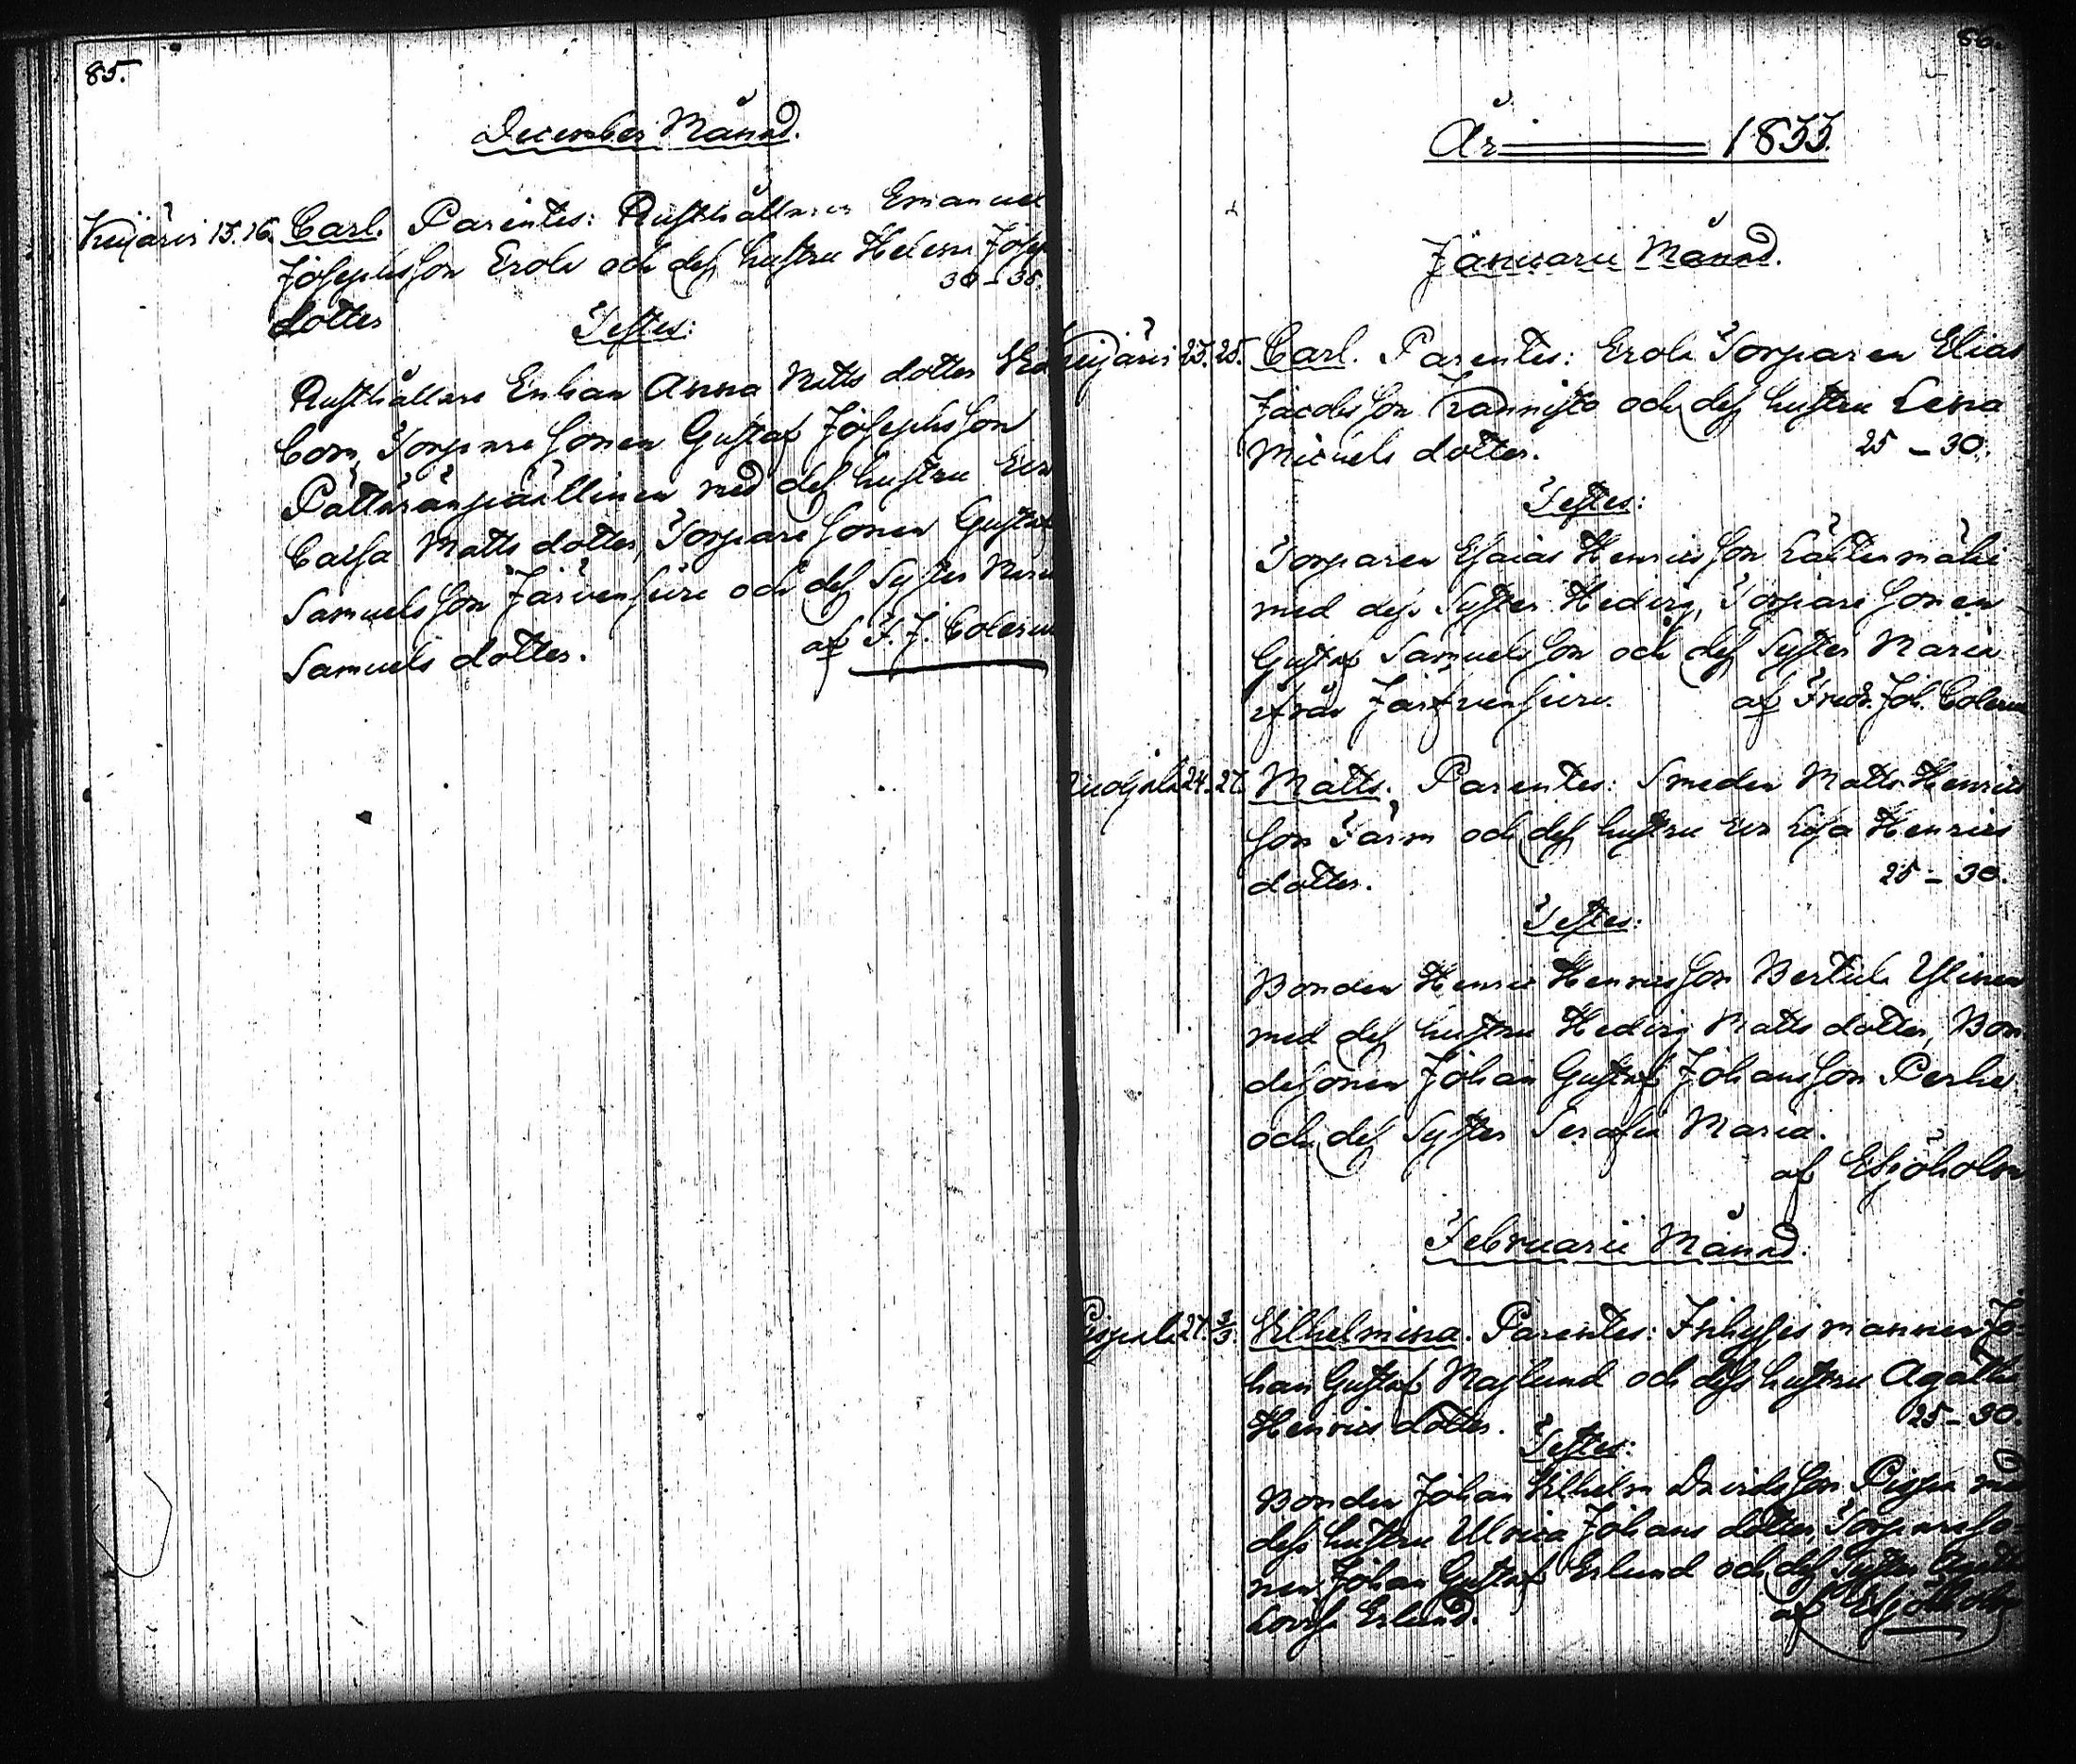 85.
December Månad.
13. 16. Carl. Parentes: Rusthållaren Emanuel
Josephsson Erola och dess hustru Helena Josep
30 – 35.
dotter
Testes:
Rusthållare Enkan Anna Matts dotter
Torpare sonen Gustaf Josephsson
med dess hustru Eva
Caisa Matts dotter, Torpare sonen Gustaf
Samuelsson Järvensivu och dess Syster Maria
Samuels dotter.
af F. J. Coleru
86.
År 1833.
Januarii Månad.
23. 25. Carl. Parentes: Erola Torparen Elias
Jacobsson Rannisto och dess hustru Lena
Michels dotter. 25 – 30.
Testes:
Torparen Esaias Henricsson
med dess Syster Hedvig, Torpare sonen
Gustaf Samuelsson och dess Syster Maria
ifrån Järfvensivu. af Fredr. Joh. Coleru
24. 27. Matts. Parentes: Smeden Matts Henrics
son Färm och dess hustru Eva Lisa Henrics
dotter. 25 – 30.
Testes:
Bonden Henric Henricsson Bertula Ylinen
med dess hustru Hedvig Matts dotter, Bon
desonen Johan Gustaf Johansson Perho
och dess Syster Serafia Maria.
af ESjöholm
Februarii Månad.
Pispala 27. 3/3. Vilhelmina. Parentes: Inhysesmannen Jo-
han Gustaf Maslund och dess hustru Agatha
Henrics dotter. 25 – 30.
Testes:
Bonden Johan Vilhelm Davidsson Pispa med
dess hustru Ulrica Johans dotter, Torpareso-
nen Johan Gustaf Erlund och dess Syster
Lovisa Erlund. af ESjöholm